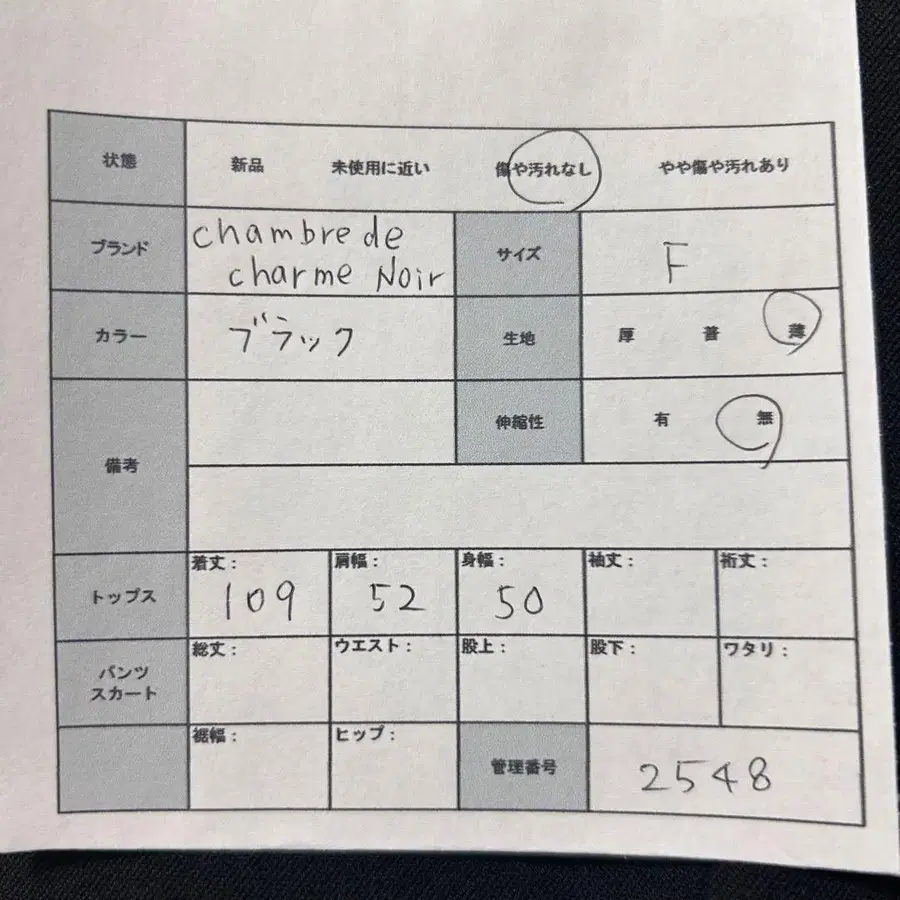 状態 新品 未使用に近い 傷や汚れなし やや傷や汚れあり
ブランド chambre de charme Noir サイズ F
カラー ブラック 生地 厚 普 薄
備考 伸縮性 有 無
トップス 着丈: 109 肩幅: 52 身幅: 50 袖丈: 裄丈:
パンツ スカート 総丈: ウエスト: 股上: 股下: ワタリ:
裾幅: ヒップ: 管理番号 2548